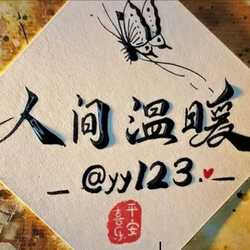 人间温暖
@yy123.
平安
喜乐